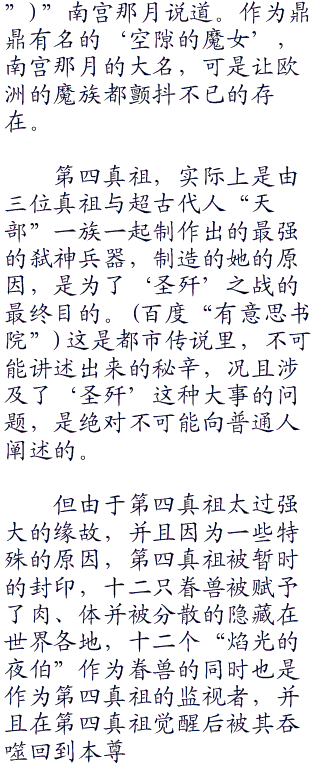 ”)”南宫那月说道。作为鼎
鼎有名的‘空隙的魔女’，
南宫那月的大名，可是让欧
洲的魔族都颤抖不已的存
在。
第四真祖，实际上是由
三位真祖与超古代人“天
部”一族一起制作出的最强
的弑神兵器，制造的她的原
因，是为了‘圣歼’之战的
最终目的。(百度“有意思书
院”)这是都市传说里，不可
能讲述出来的秘辛，况且涉
及了‘圣歼’这种大事的问
题，是绝对不可能向普通人
阐述的。
但由于第四真祖太过强
大的缘故，并且因为一些特
殊的原因，第四真祖被暂时
的封印，十二只眷兽被赋予
了肉、体并被分散的隐藏在
世界各地，十二个“焰光的
夜伯”作为眷兽的同时也是
作为第四真祖的监视者，并
且在第四真祖觉醒后被其吞
噬回到本尊